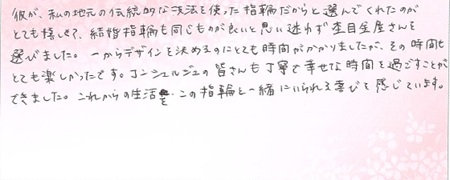 彼が、私の地元の伝統的な技法を使った指輪だからと選んでくれたのが
とても嬉しくて、結婚指輪も同じものが良いと思い迷わず杢目金屋さんを
選びました。一からデザインを決めるのにとても時間がかかりましたが、その時間も
とても楽しかったです。コンシェルジュの皆さんも丁寧で幸せな時間を過ごすことが
できました。これからの生活を、この指輪と一緒にいられる喜びを感じています。